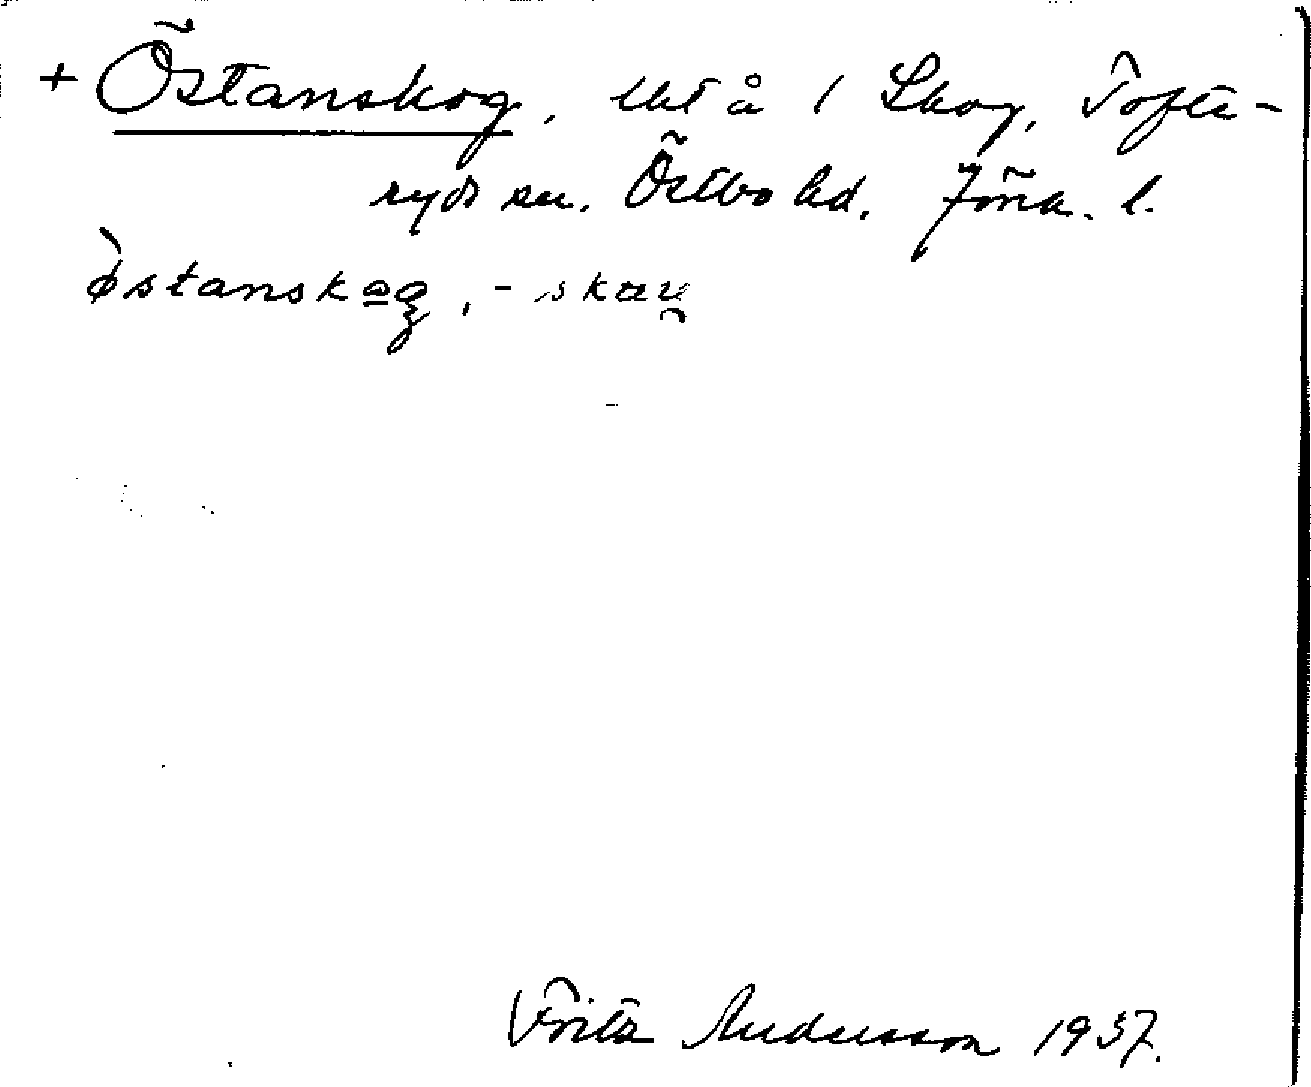 + Östanskog, tkt å 1 Skog, Tofte-
ryds sn. Östbo hd. Jönk. l.
östanskog, -skau
Fritz Andersson 1937.